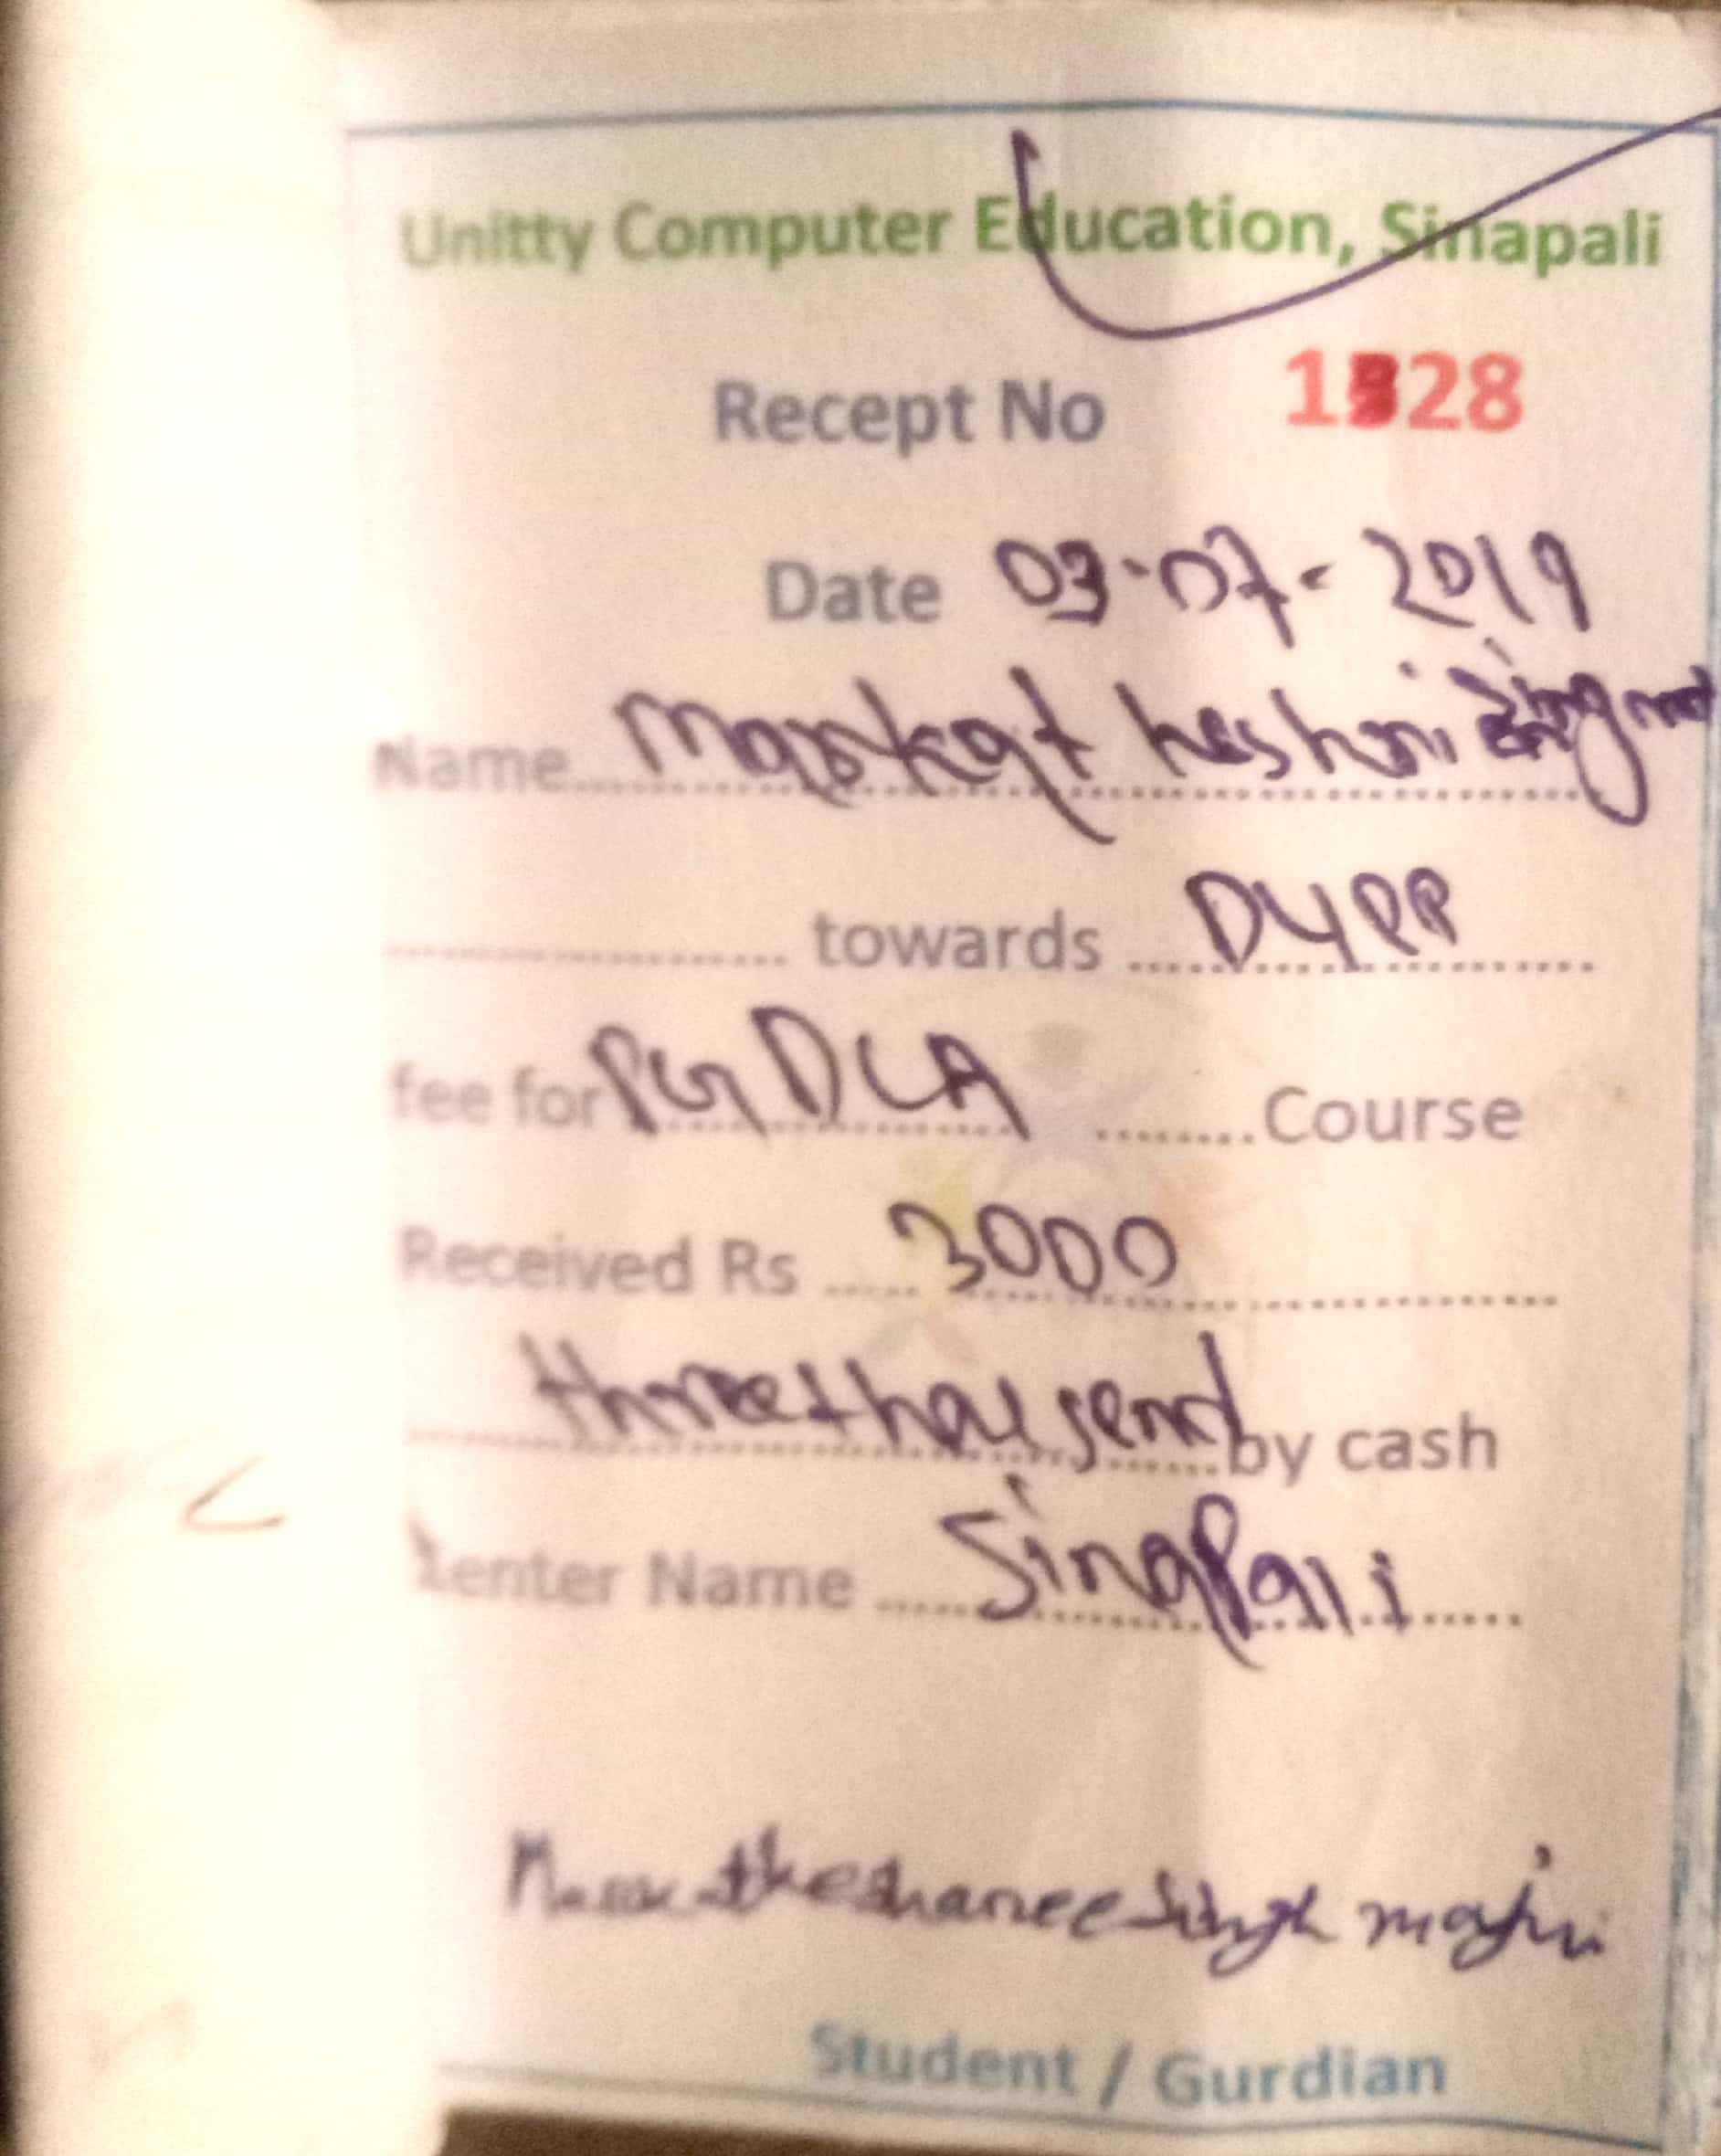 Unitty Computer Education, Sinapali
Recept No
Date 03-07-2019
Name
towards DYPP
fee for PGDCA Course
Received Rs 3000
three thousend by cash
Center Name Sinapali
Singh majhi
Student / Gurdian